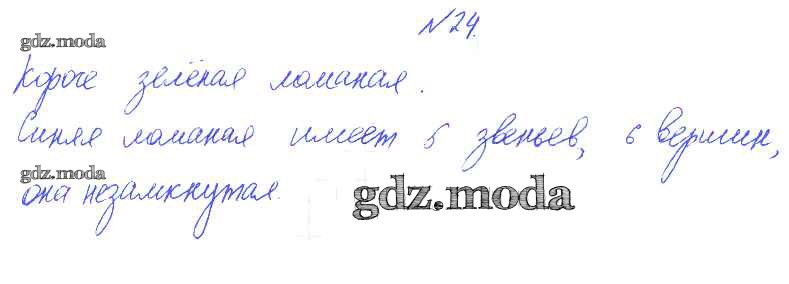 №24.
gdz.moda
Короче зелёная ломаная.
Синяя ломаная имеет 5 звеньев, 6 вершин,
gdz.moda
она незамкнутая.
gdz.moda